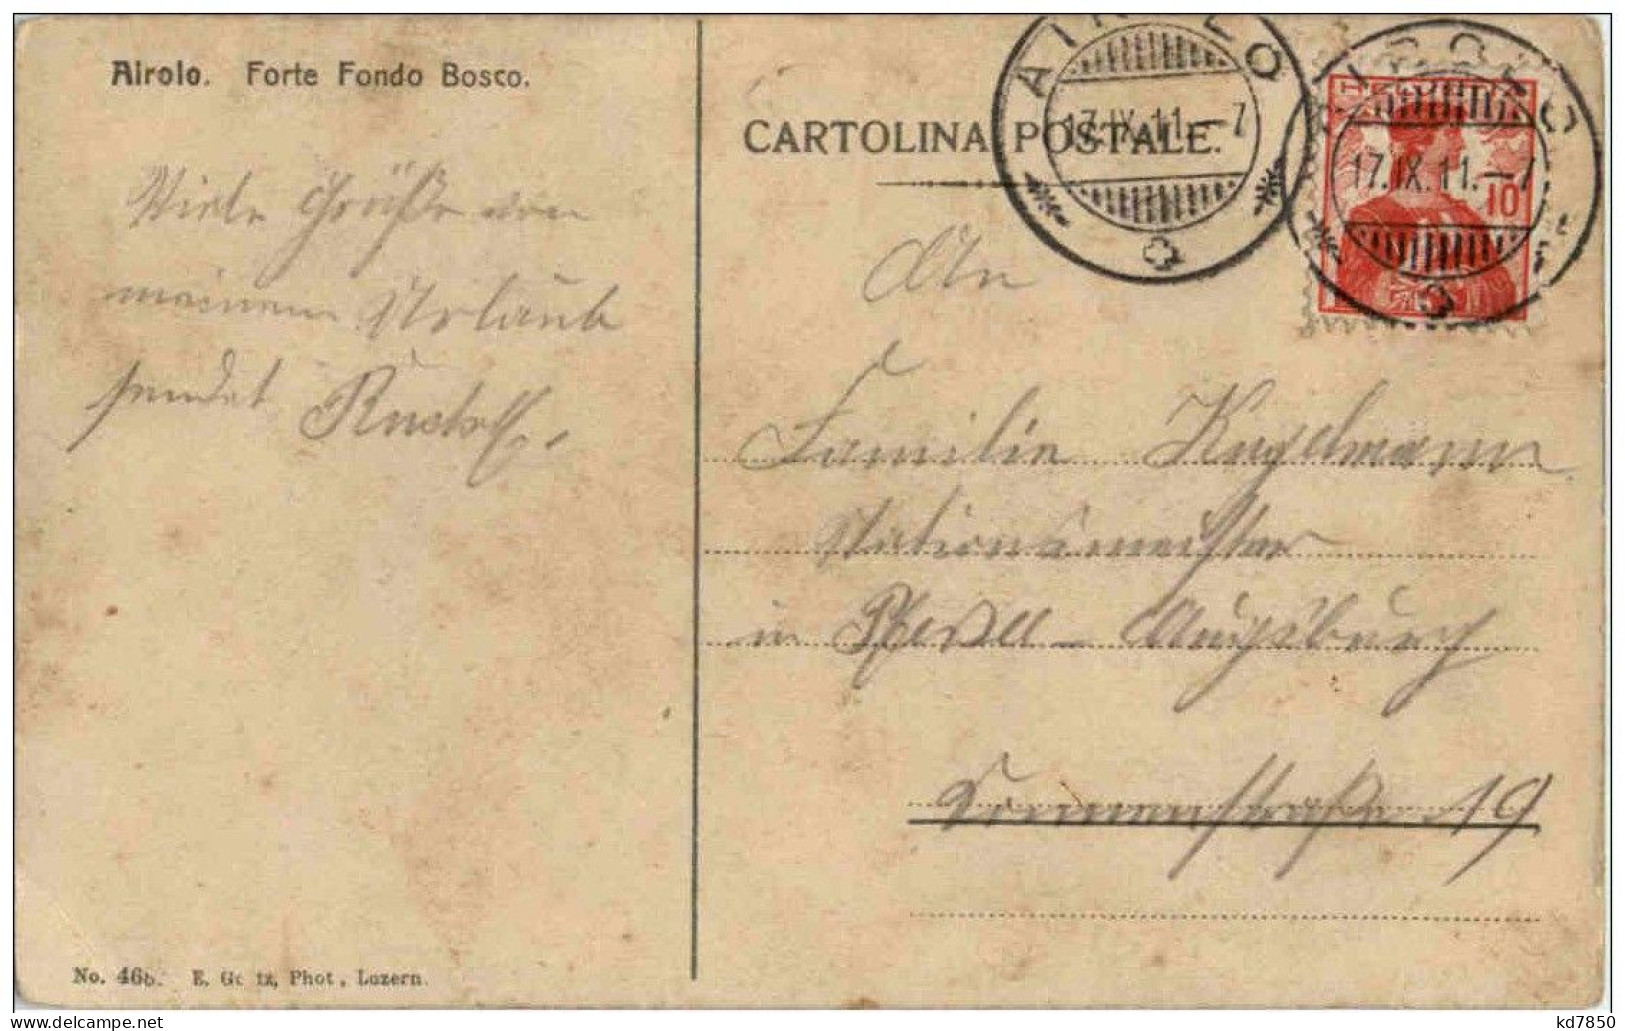 Airolo. Forte Fondo Bosco.
CARTOLINA POSTALE.
AIROLO
17.IX.11.–7
AIROLO
17.IX.11.–7
10
Viele Grüße von
meinem Urlaub
sendet Rudolf.
An
Familie Kugelmann
Stationsmeister
in Pfersee – Augsburg
19
No. 46b. E. Goetz, Phot., Luzern.
kd7850